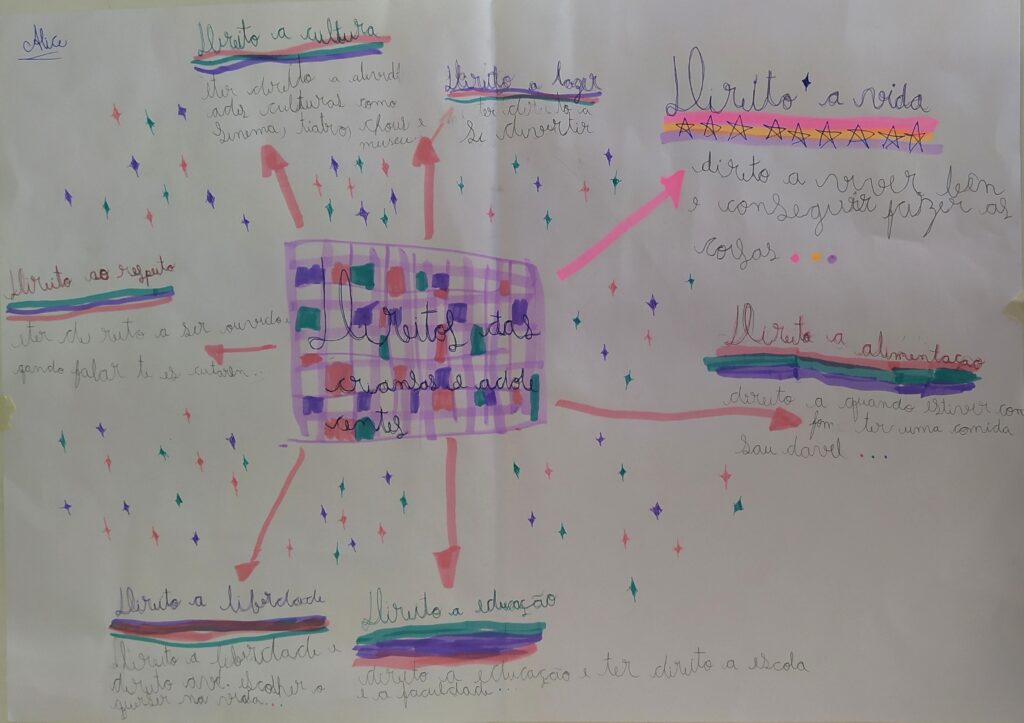 Alice
Direito a cultura
ter direito a ativid
ades culturas como
Sinema, tiatro, chous e
museu
Direito a lazer
ter direito a
se divertir
Direito a vida
direto a viver bên
e conseguir fazer as
coisas ...
Direito ao respeito
ter de reito a ser ouvido e
qando falar te es cutarem...
Direitos das
criansas e adole
centes
Direito a alimentação
direito a quando estiver com
fom ter uma comida
sau davel ...
Direito a liberdade
Direito a liberdade e
direito escolher o
quiser na vida...
Direito a educação
direito a educação e ter direito a escola
e a faculdade ...